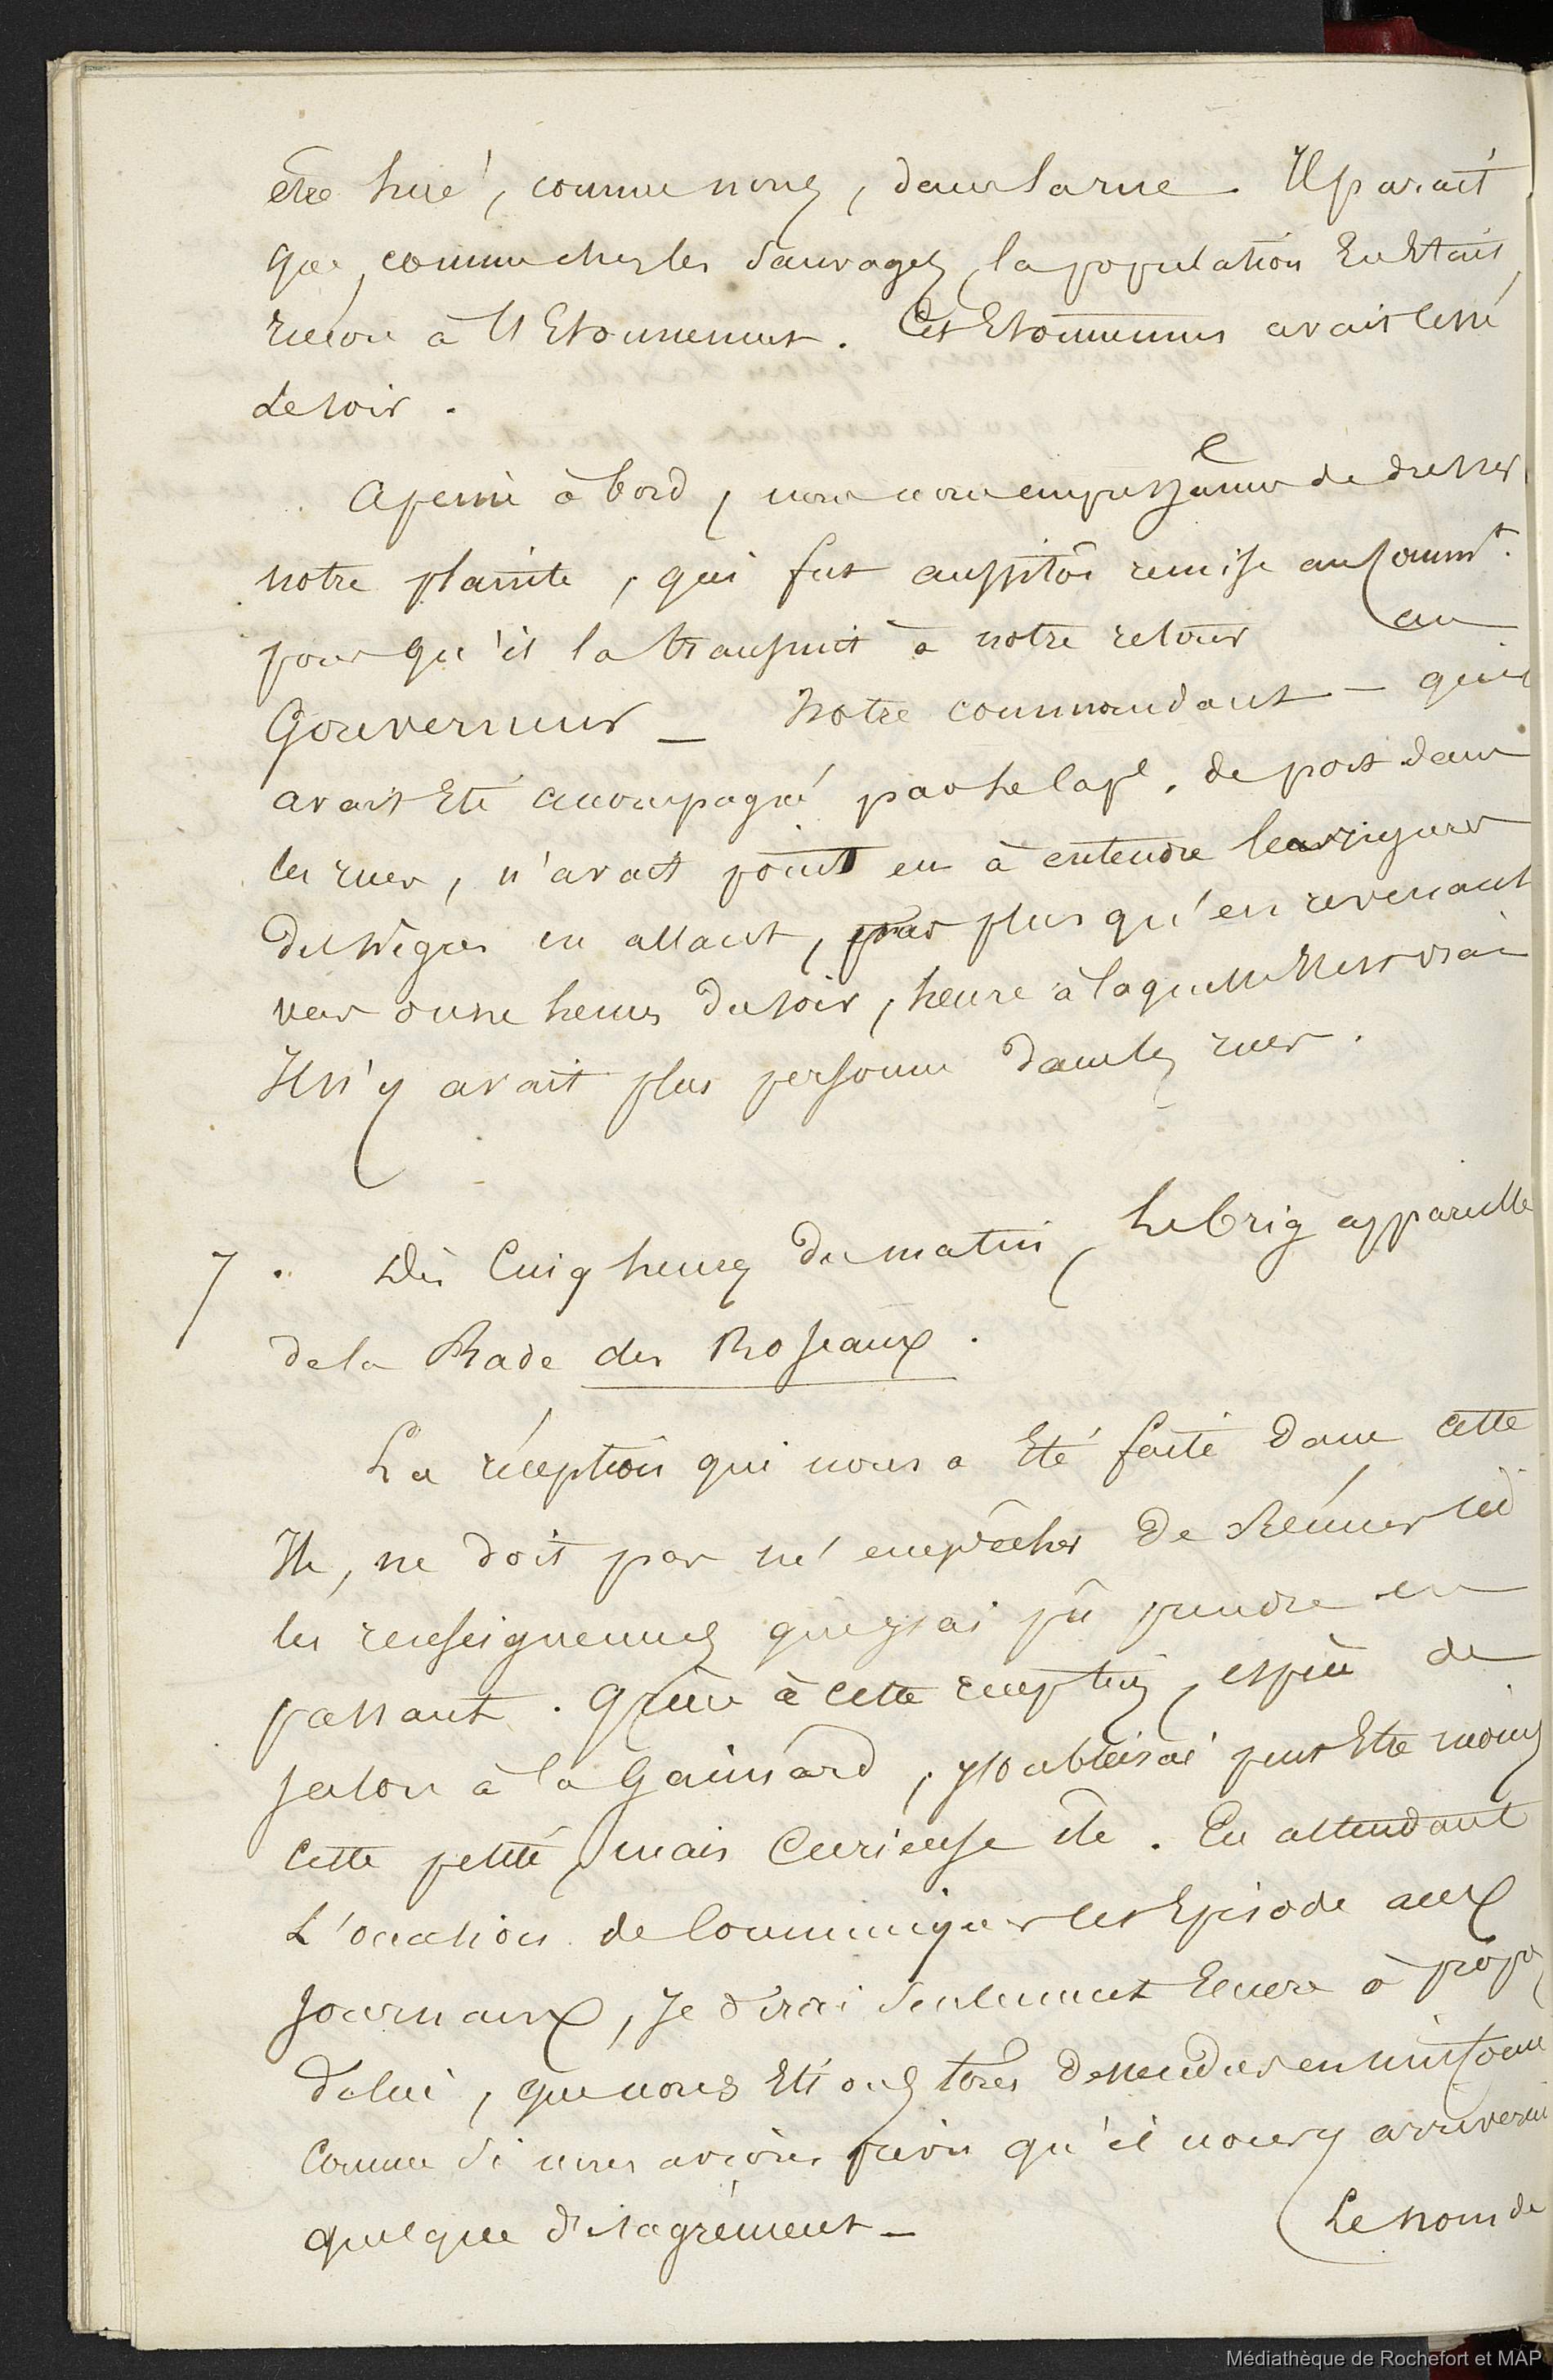 être hué, comme nous, dans la rue. Il paraît
que, comme chez les sauvages, la population en était
encore à l'Etonnement. Cet Etonnement avait cessé
le soir.
A peine à bord, nous nous empressâmes de dresser
notre plainte, qui fut aussitôt remise au Commt.
pour qu'il la transmit à notre retour au
Gouverneur _ Notre commandant - qui
avait été accompagné par le Cape. de port dans
les rues, n'avait point eu à entendre les injures
des Nègres en allant, pas plus qu'en revenant
vers onze heures du soir, heure à laquelle il est vrai
Il n'y avait plus personne dans les rues.
7. Dès Cinq heures du matin, Le brig appareille
de la Rade des Roseaux.
La réception qui nous a été faite dans cette
Ile, ne doit pas m'empêcher de Résumer ici
les renseignemens que j'ai pû prendre en
passant. Grâce à cette réception, espèce de
selon à la Gaimard, j'oublierai peut être moins
cette petite, mais Curieuse île. En attendant
L'occasion de Communiquer cet Episode aux
Journaux, Je dirai seulement Encore à propos
de lui, que nous étions tous descendus en uniforme
Comme si nous avions prévu qu'il nous y arriverait
quelque désagrément _ Le nom de
Médiathèque de Rochefort et MAP